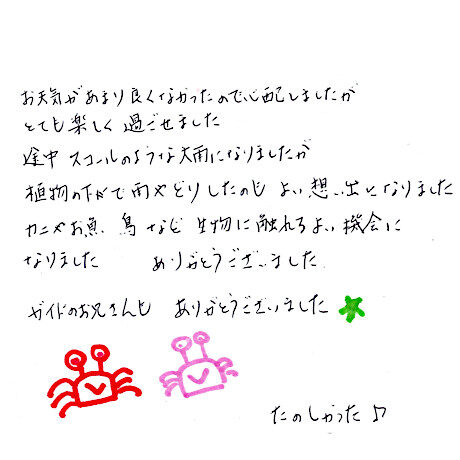 お天気があまり良くなかったので心配しましたが
とても楽しく過ごせました
途中 スコールのような大雨になりましたが
植物の下で雨やどりしたのも よい想い出となりました
カニやお魚、鳥など 生物に触れるよい機会に
なりました ありがとうございました
ガイドのお兄さんも ありがとうございました
たのしかった♪